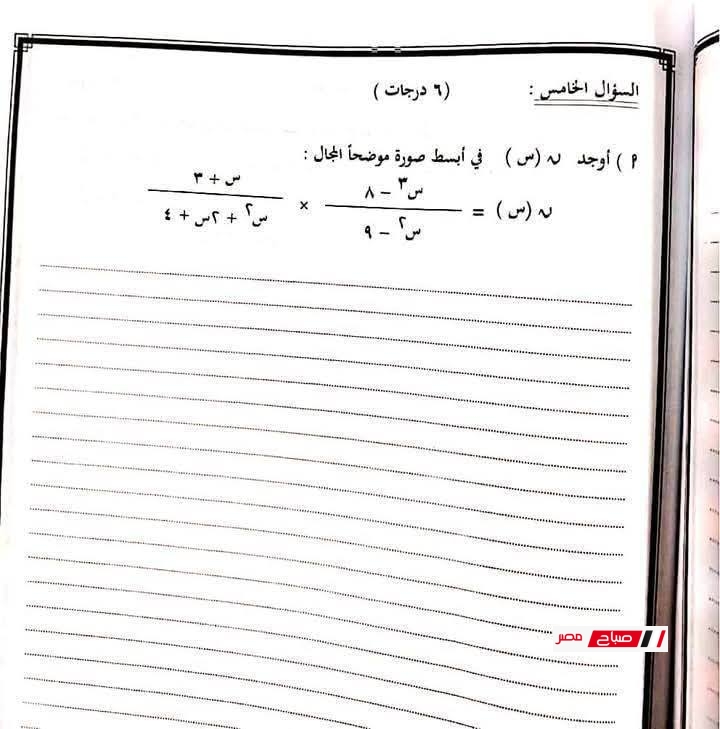 السؤال الخامس : ( ٦ درجات )
٩ ) أوجد ن (س) في أبسط صورة موضحاً المجال :
ن (س) = س٣ - ٨ / س٢ - ٩ × س + ٣ / س٢ + ٢س + ٤
صباح مصر